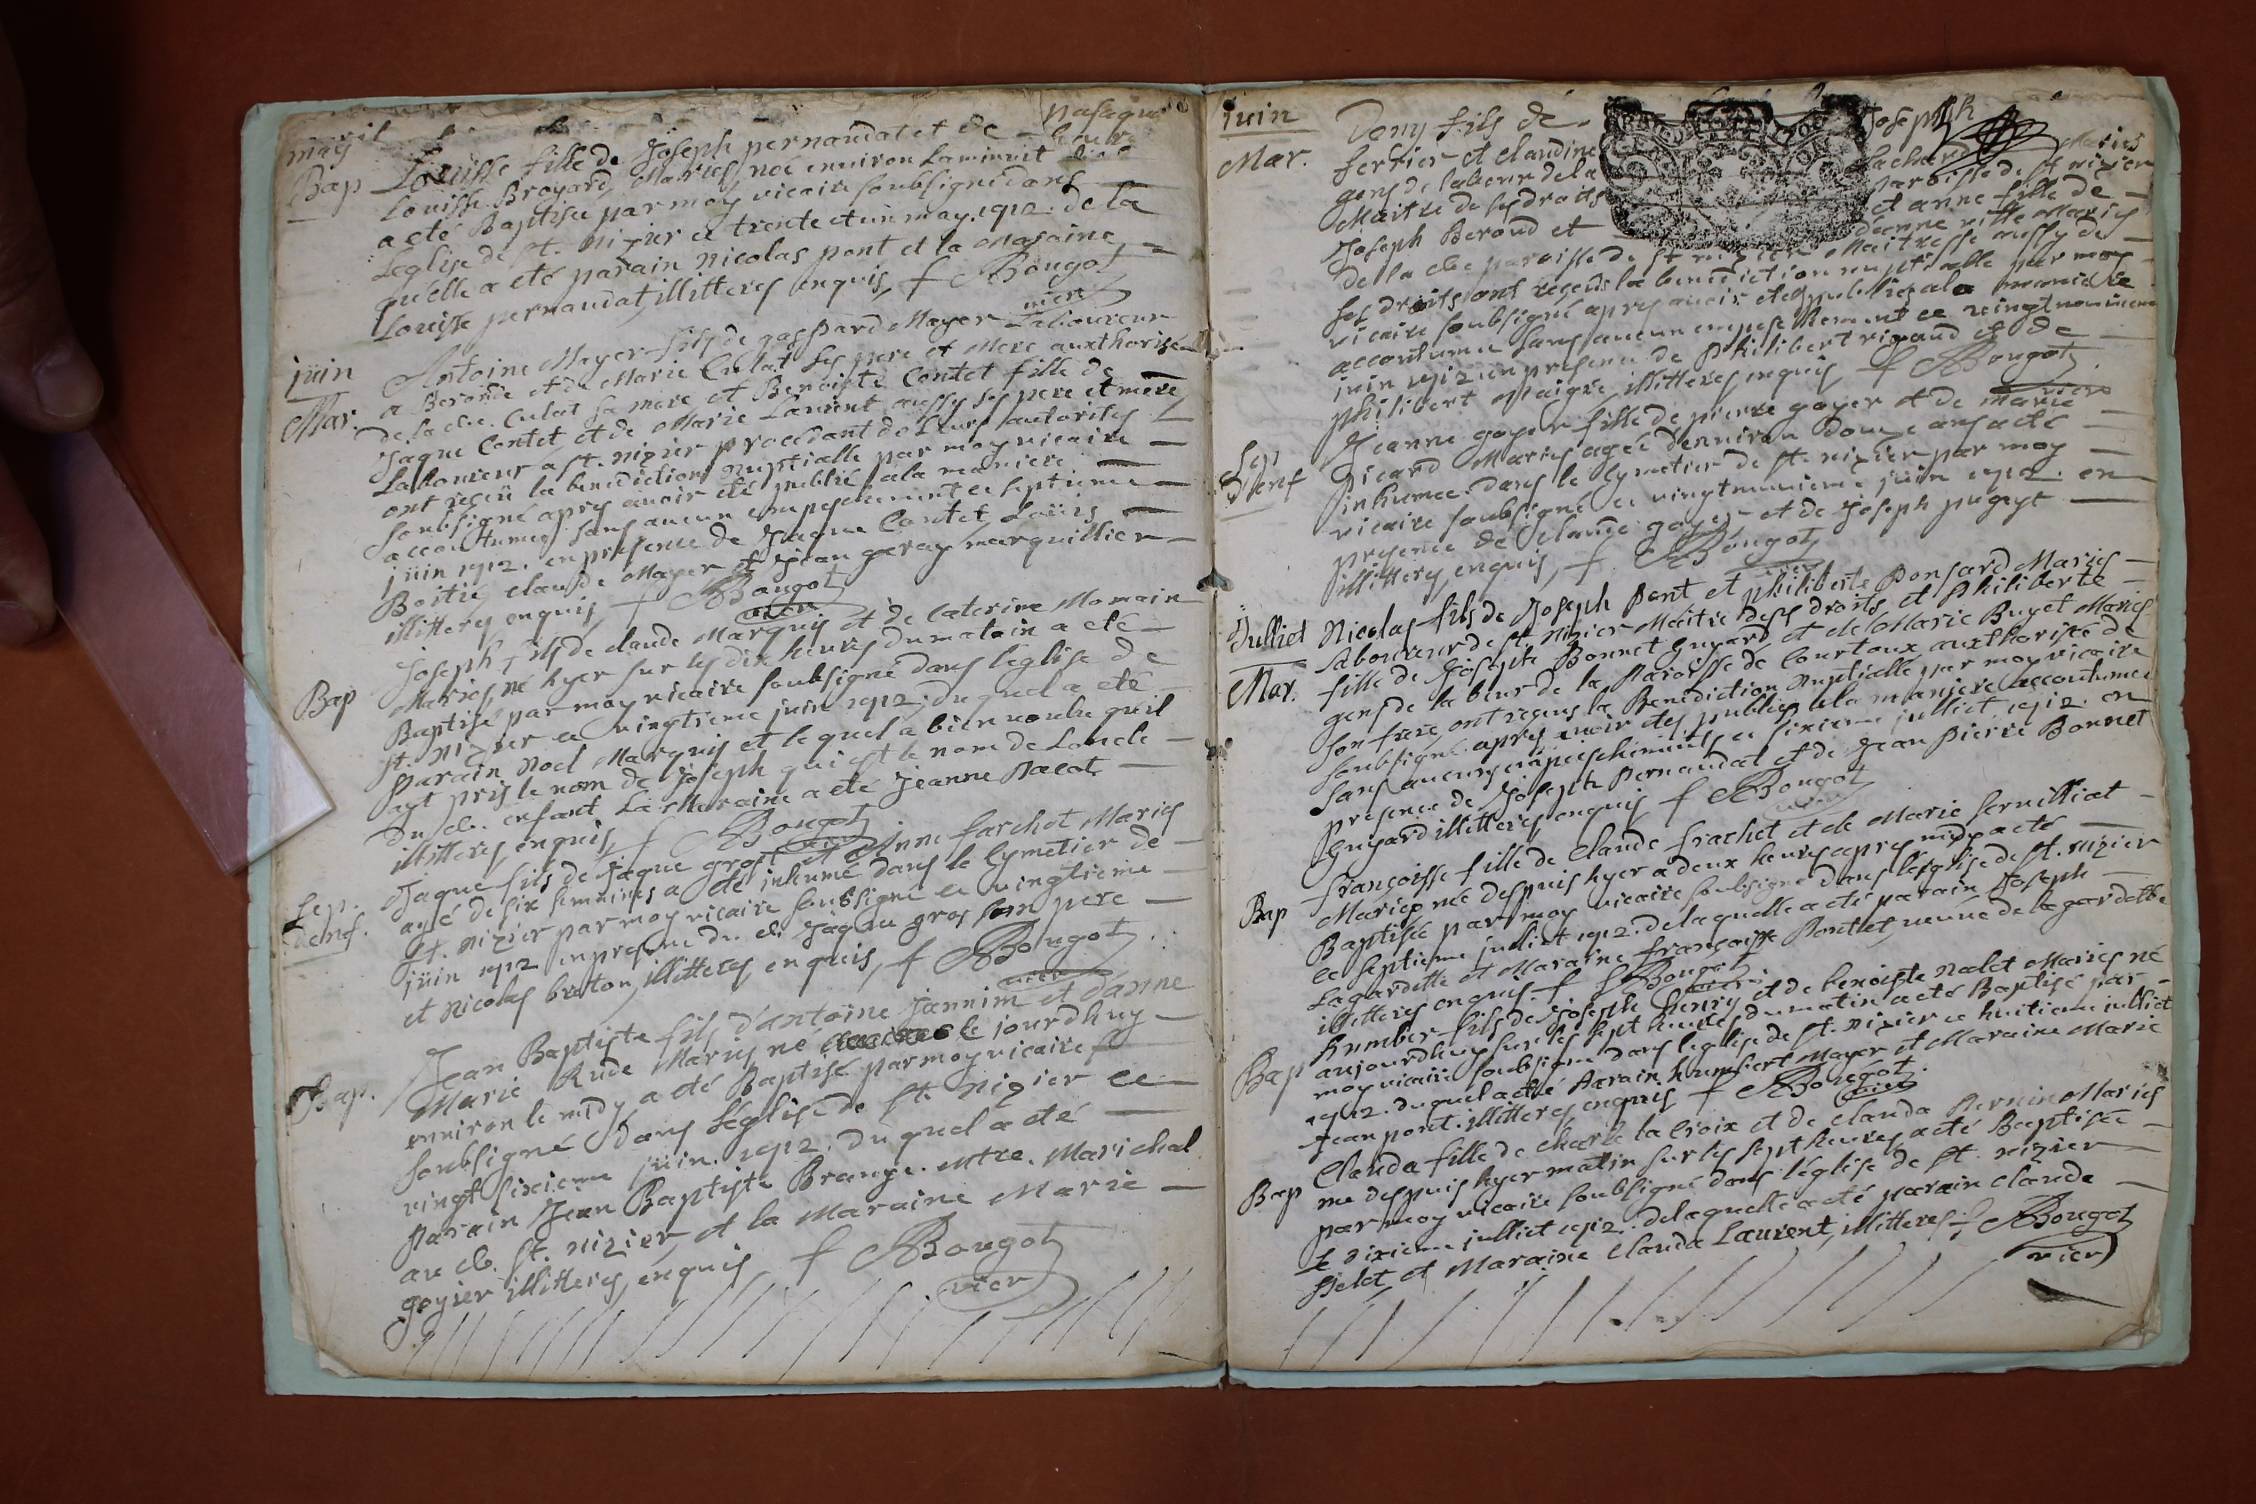 may
Bap
Louisse fille de Joseph pernaudat et de
Louisse Broyard Mariés née environ la minuit
a eté Baptisée par moy vicaire soubsigné dans
Leglise de st. nizier ce trente et un may 1712. de la
quelle a eté parain nicolas pont et la Maraine
Louisse pernaudat, illitteres enquis, f Bougot
vicre
juin
Mar.
Antoine Mayer fils de gaspard Mayer Laboureur
a Beronde et de Marie Culat ses pere et Mere auxthorisé
de la de. Culat sa mere et Benoiste Contet fille de
Jaque Contet et de Marie Laurent aussy ses pere et mere
Laboureur a st. nizier procedant de Leurs autorités
ont reçeu la benediction nuptialle par moy vicaire
soubsigné apres avoir eté publié a la maniere
accoutumee sans aucun empeschement ce septieme
juin 1712. en presence de Jaque Contet Loüis
Boitié, claude Mayer et Jean geray marguillier
illitteres enquis, f Bougot
vicre
Bap
Joseph fils de claude Marquis et de Caterine Momain
Mariés né hyer sur les dix heures du matin a eté
Baptisé par moy vicaire soubsigné dans l'église de
st. nizier ce vingtieme juin 1712. du quel a eté
parain noel Marquis et lequel a bien voulu qu'il
ayt pris le nom de Joseph qui est le nom de Loncle
du de. enfant La Maraine a eté Jeanne nalet
illitteres, enquis, f Bougot
Sep.
denf.
Jaque fils de Jaque gros et Anne farchot Mariés
agé de six semaines a eté inhumé dans le Cymetier de
st. nizier par moy vicaire soubsigné ce vingtieme
juin 1712 en presence du d. Jaque gros son pere
et nicolas breton, illitteres, enquis, f Bougot
vicre
Bap.
Jean Baptiste fils d'antoine jannin et d'anne
Marie Rude Mariés né le jourdhuy
environ le midy a eté Baptisé par moy vicaire
soubsigné dans l'église de st. nizier ce
vingt sixieme juin. 1712. du quel a eté
parain Jean Baptiste Brange. mtre. Marichal
au d. st. nizier, et la maraine Marie
goyier illitteres, enquis, f Bougot
vicre
juin
Mar.
Deny fils de Joseph
ferrier et claudine Mariés
gens de labeur de la paroisse de st nizier
Maitre de ses droits et anne fille de
Joseph Beroud et d'anne Mariés
de la de. paroisse de st nizier Maitresse aussy de
ses droits ont reçeus la benediction nuptialle par moy
vicaire soubsigné apres avoir eté publiés a la maniere
accoutumee sans aucun empeschement ce vingt neuvieme
juin 1712 en presence de philibert rigaud et de
philibert Maigre, illitteres, enquis, f Bougot
vicre
Sep
denf
Jeanne goyer fille de pierre goyer et de marie
Picard Mariés agée d'environ Douze ans a eté
inhumee dans le Cymetier de st. nizier par moy
vicaire soubsigné ce vingt neuvieme juin 1712. en
presence de claude goyer et de Joseph pugeyt
illitteres enquis, f Bougot
Julliet
Mar.
Nicolas fils de Joseph pont et philiberte Ponsard Mariés
Laboureur de st nizier Maitre de ses droits, et Philiberte
fille de Joseph Bonnet Guyard et de Marie Buget Mariés
gens de labeur de la paroisse de Courtoux auxthorisée de
son frere, ont reçeus la Benediction nuptialle par moy vicaire
soubsigné apres avoir etés publiés a la maniere accoutumée
sans aucuns empeschements, ce sixieme julliet 1712. en
presence de Joseph Pernaudat et de Jean Pierre Bonnet
Guyard illitteres, enquis f Bougot
vicre
Bap
Françoisse fille de Claude frachet et de Marie
Mariés née despuis hyer a deux heures apres midy a eté
Baptisée par moy vicaire soubsigné dans l'église de st. nizier
ce septieme julliet 1712. de laquelle a eté parain Joseph
Lagardette et Maraine françoisse Pontet, veuve de lagardette
illitteres enquis. f Bougot
Bap
humber fils de Joseph henry et de benoiste nalet Mariés né
aujourdhuy sur les sept heures du matin a eté Baptisé par
moy vicaire soubsigné dans leglise de st. nizier ce huitieme julliet
1712. du quel a eté Parain humbert Mayer et Maraine Marie
Jean pont. illitteres enquis f Bougot
vicre
Bap
Clauda fille de charle la Croix et de clauda Mariés
née despuis hyer matin sur les sept heures a eté Baptisée
par moy vicaire soubsigné dans l'église de st. nizier
le dixieme julliet 1712. de laquelle a eté parain claude
et Maraine clauda Laurent, illitteres, f Bougot
vicre